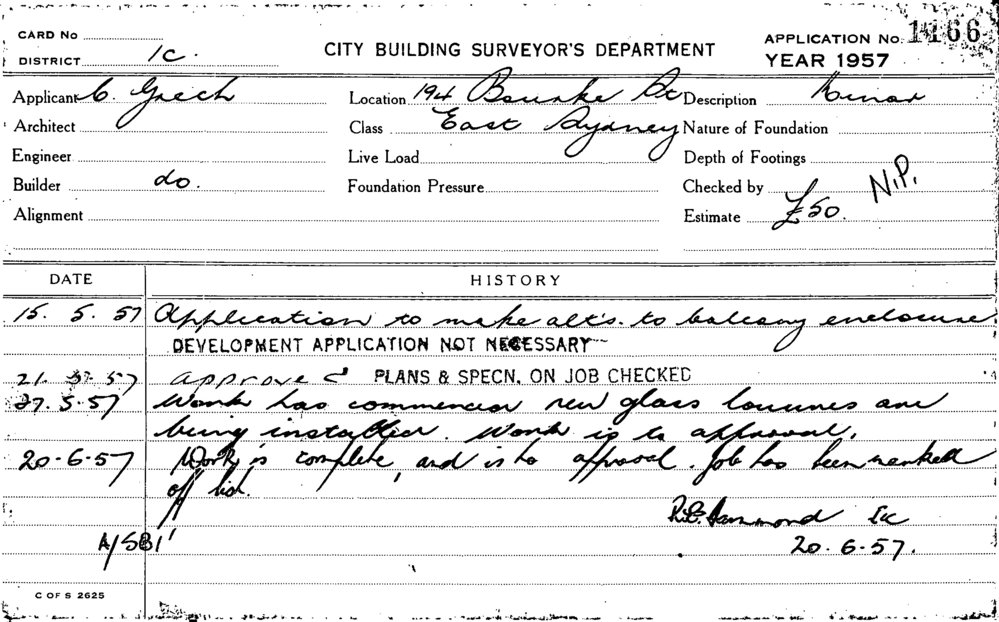 CARD No
DISTRICT 1C.
CITY BUILDING SURVEYOR'S DEPARTMENT
APPLICATION No. 1166
YEAR 1957
Applicant C. Grech
Location 194 Bourke St
Description Minor
Architect
Class East Sydney
Nature of Foundation
Engineer
Live Load
Depth of Footings
Builder do.
Foundation Pressure
Checked by N.P.
Alignment
Estimate £50.
DATE
HISTORY
15. 5. 57 Application to make alt's. to balcony enclosure.
DEVELOPMENT APPLICATION NOT NECESSARY
21. 5. 57 approved PLANS & SPECN. ON JOB CHECKED
27. 5. 57 Work has commenced new glass louvres are
being installed. Work is to approval.
20-6-57 Work is complete and is to approval. Job has been marked
off list.
Hammond 1c
A/SB1
20. 6-57.
C OF S 2625